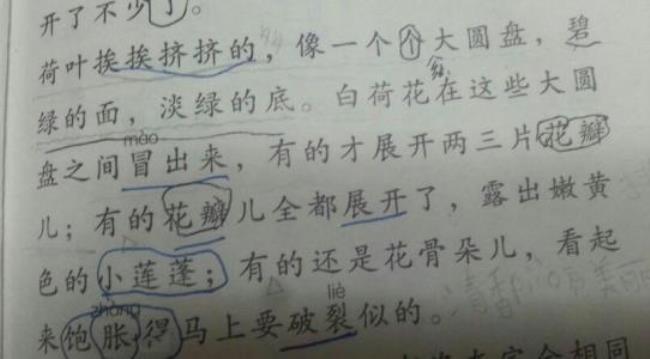 开了不少了。
荷叶挨挨挤挤的，像一个个大圆盘，碧
绿的面，淡绿的底。白荷花在这些大圆
mào
盘之间冒出来，有的才展开两三片花瓣
儿；有的花瓣儿全都展开了，露出嫩黄
色的小莲蓬；有的还是花骨朵儿，看起
zhàng liè
来饱胀得马上要破裂似的。